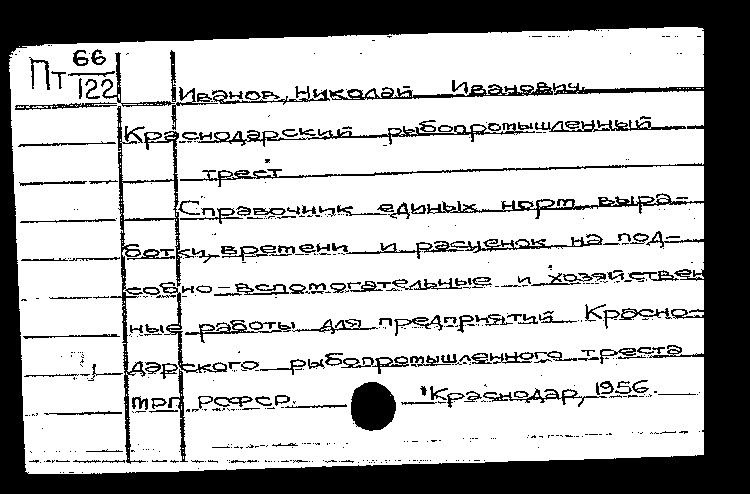 Пт 66/122
Иванов, Николай Иванович.
Краснодарский рыбопромышленный
трест
Справочник единых норм выра=
ботки, времени и расценок на под=
собно-вспомогательные и хозяйствен
ные работы для предприятий Красно=
дарского рыбопромышленного треста
МРП РСФСР. Краснодар, 1956.